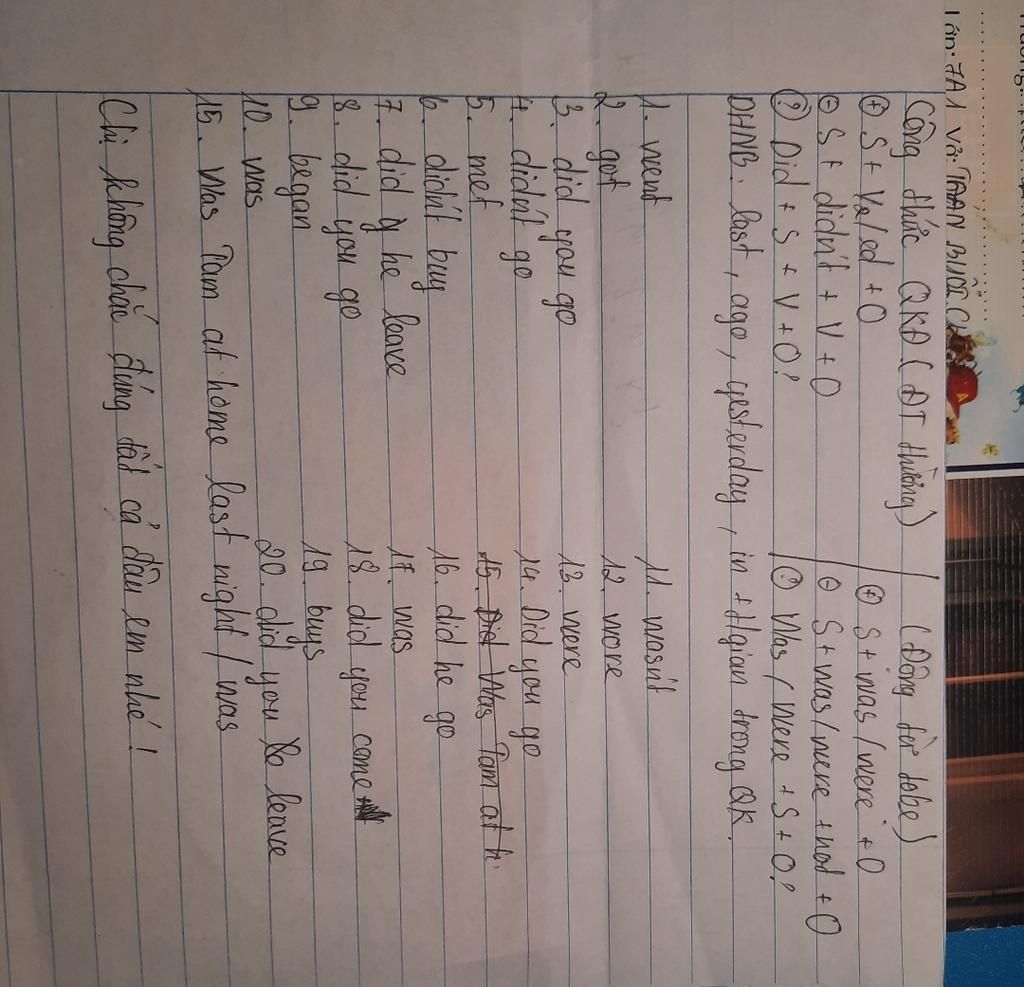 Lớp: 7A1 Vở: TOÁN BUỔI CH
Công thức QKĐ (ĐT thường) / (Động từ tobe)
(+) S + V2/ed + O (+) S + was / were + O
(-) S + didn't + V + O (-) S + was / were + not + O
(?) Did + S + V + O? (?) Was / were + S + O?
DHNB: last, ago, yesterday, in + tgian trong QK.
1. went 11. wasn't
2. got 12. wore
3. did you go 13. were
4. didn't go 14. Did you go
5. met 15. Did Was Tam at h.
6. didn't buy 16. did he go
7. did he leave 17. was
8. did you go 18. did you come
9. began 19. buys
10. was 20. did you leave
15. Was Tam at home last night / was
Chị không chắc đúng tất cả đâu em nhé!